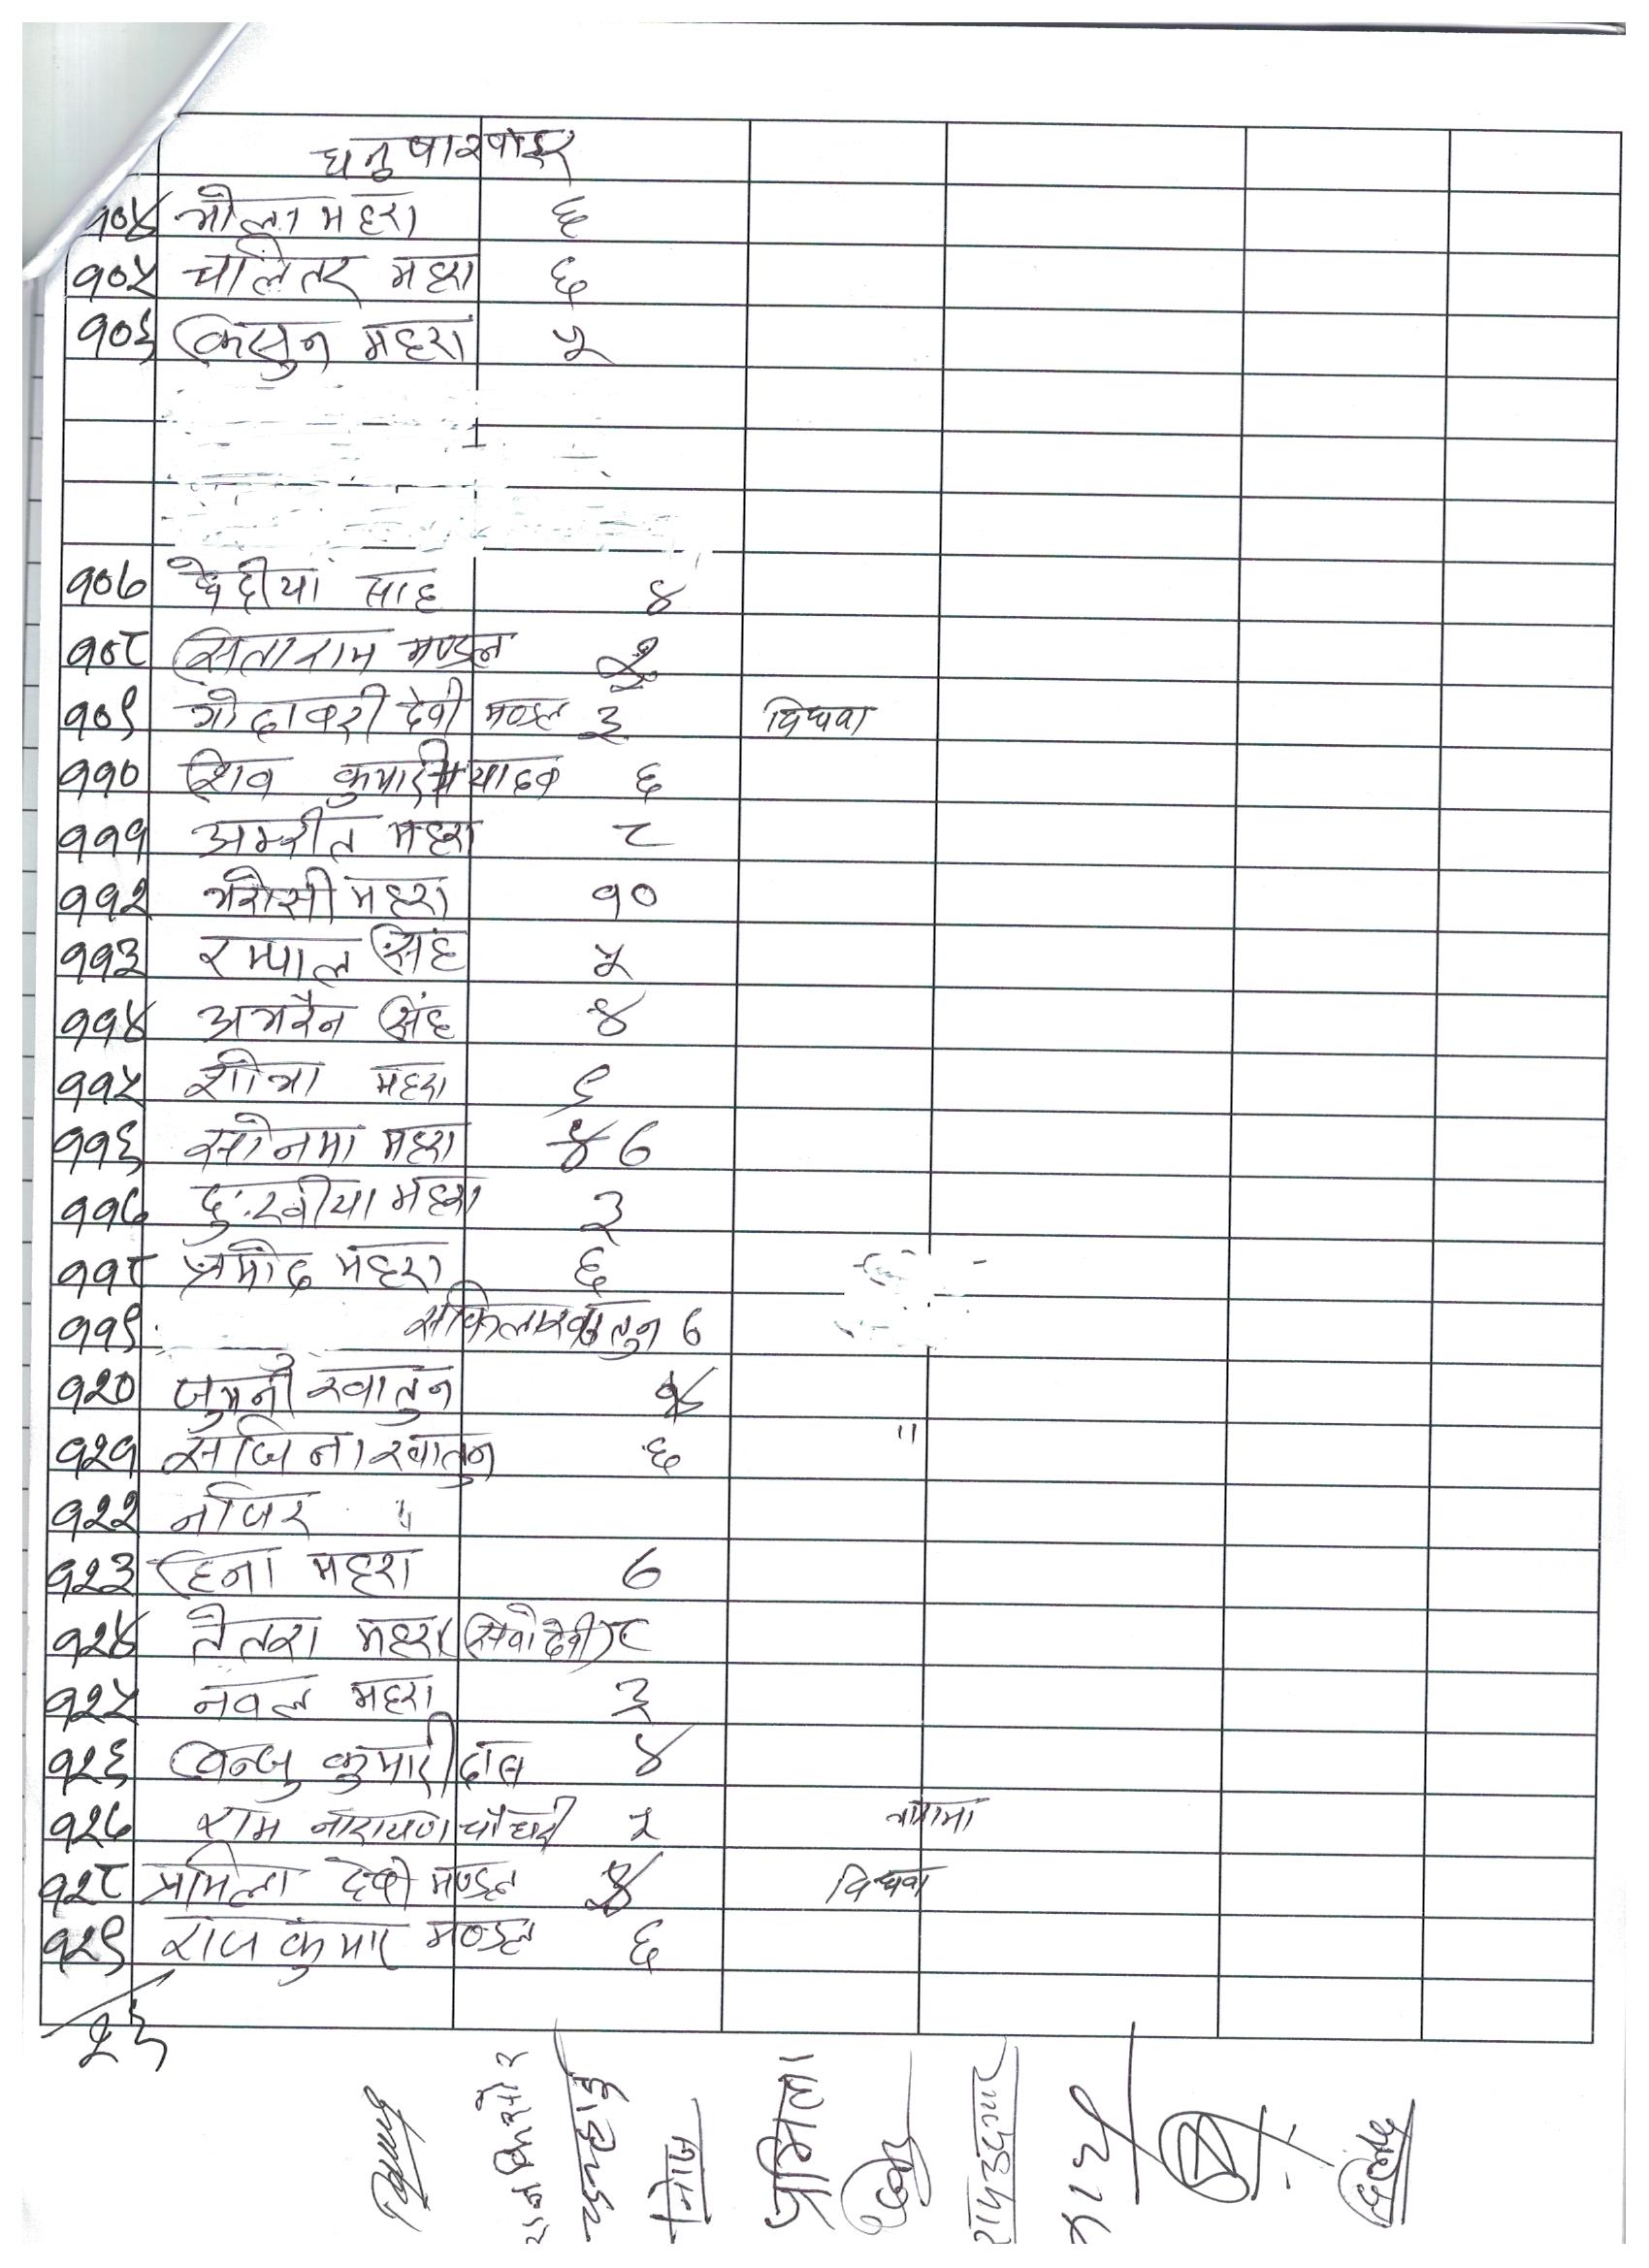 धनुषा खोइर
१०४ भोला महरा ६
१०५ चलितर महरा ६
१०६ किसुन महरा ५
१०७ बेदीया साह ४
१०८ सिताराम मण्डल
१०९ गोदावरी देवी मण्डल ३ विधवा
११० शिव कुमारी यादव ६
१११ अमरीत महरा ८
११२ भरोसी महरा १०
११३ रमपाल सिंह ५
११४ अभरैन सिंह ४
११५ शोभा महरा ९
११६ सोनमा महरा ४ ७
११७ दुःखीया महरा ३
११८ प्रमोद महरा ६
११९ सकिला खातुन ७
१२० जुमनी खातुन
१२१ सजिना खातुन ६ "
१२२ नजिर "
१२३ हिना महरा ७
१२४ तेतरा महरा (सिवो देवी) ८
१२५ नवल महरा ३
१२६ विन्जु कुमारी दास ४
१२७ राम नारायण चौधरी २
१२८ प्रमिला देवी मण्डल विधवा
१२९ राज कुमार मण्डल ६
२६
राज किशोर
प्रमिला
रामउदगार